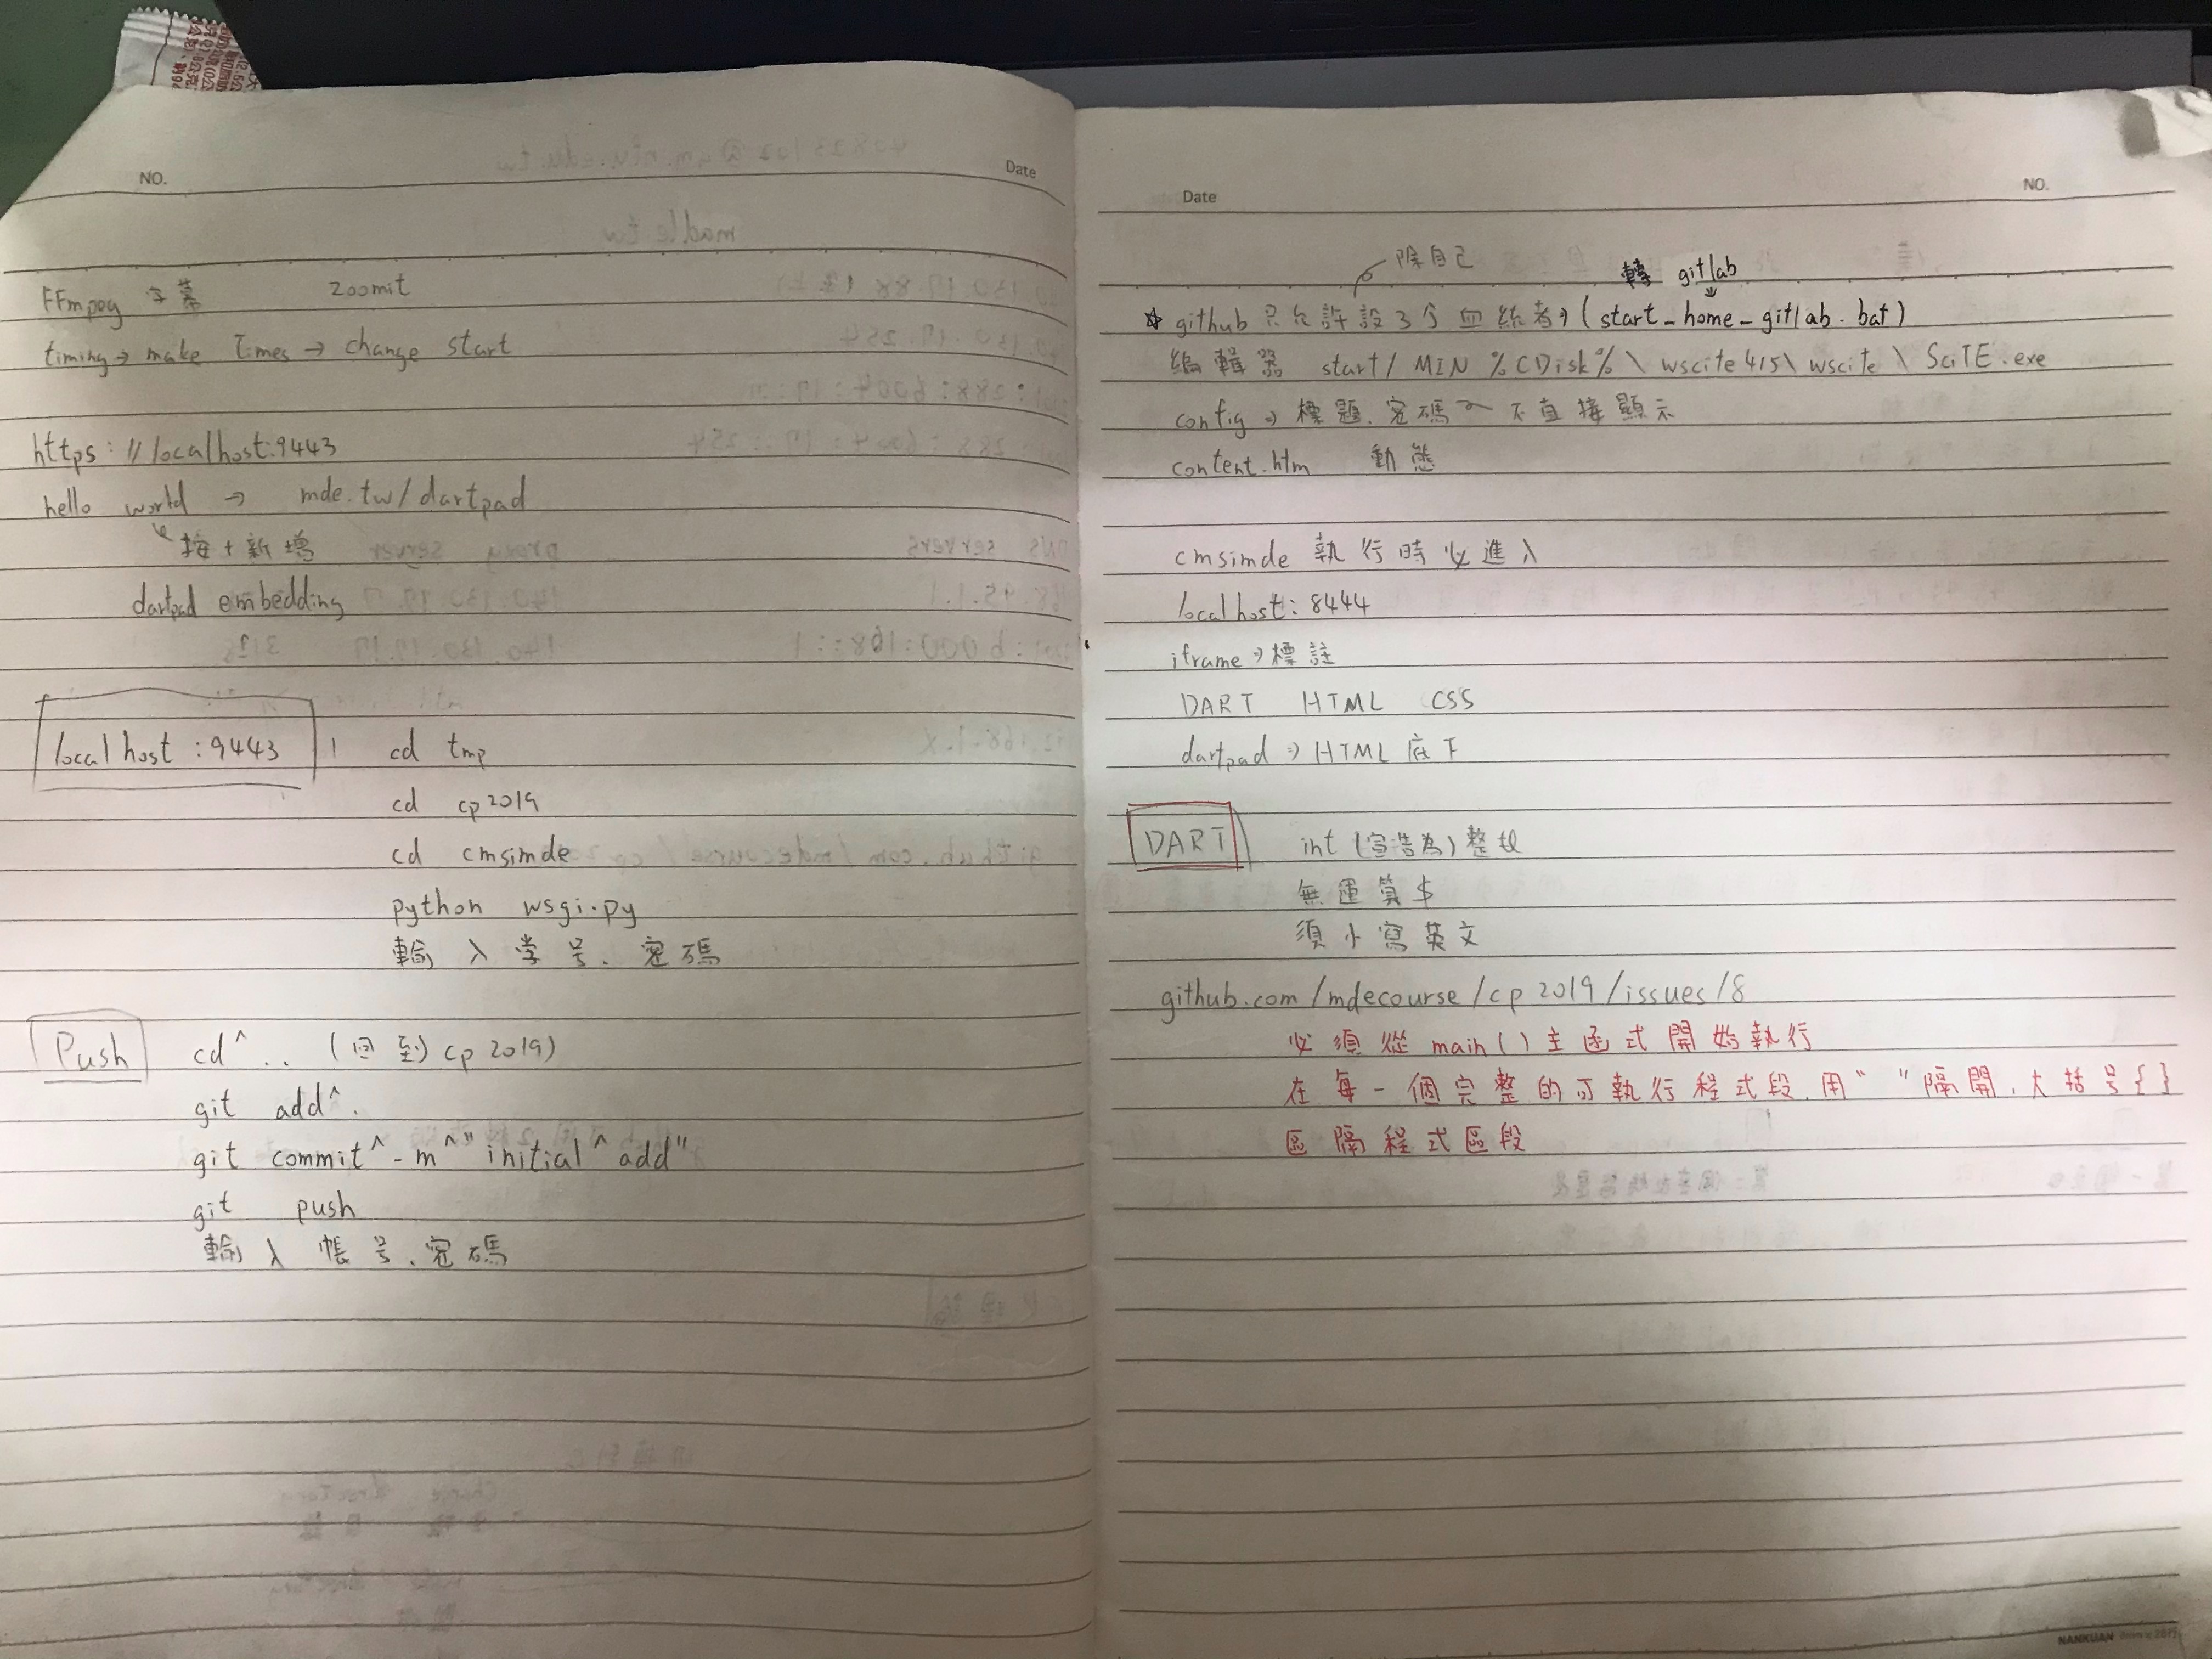 NO.
Date
FFmpeg 字幕 zoomit
timing → make Times → change start
https://localhost:9443
hello world → mde.tw/dartpad
按+新增
dartpad embedding
localhost:9443 cd tmp
cd cp2019
cd cmsimde
python wsgi.py
輸入學号、密碼
Push cd^.. (回到cp2019)
git add^.
git commit^-m^"initial^add"
git push
輸入帳号、密碼
Date
NO.
除自己
轉 gitlab
☆ github 只允許設3个 (start_home_gitlab.bat)
編輯器 start/MIN %CDisk% \ wscite415\ wscite \ SciTE.exe
config → 標題、密碼 ~ 不直接顯示
content.htm 動態
cmsimde 執行時必進入
localhost:8444
iframe → 標註
DART HTML CSS
dartpad → HTML 底下
DART int (宣告為) 整數
無運算本
須小寫英文
github.com/mdecourse/cp2019/issues/8
必須從 main() 主函式開始執行
在每一個完整的可執行程式段,用" "隔開,大括号{}
區隔程式區段
NANKUAN